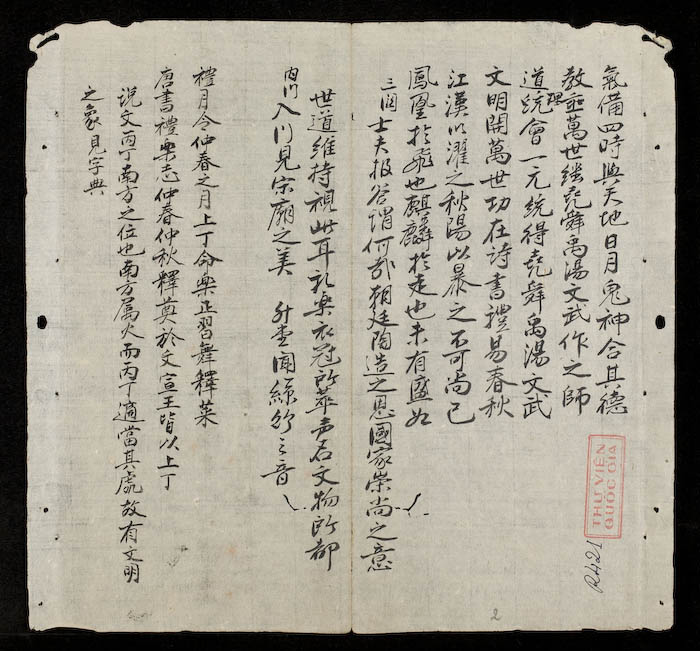 氣備四時與天地日月鬼神合其德
教垂萬世继尭舜禹湯文武作之師
道理統會一元統得尭舜禹湯文武
文明開萬世功在诗書禮易春秋
江漢以濯之秋陽以暴之不可尚已
鳳凰於飛也麒麟於走也未有盛如
三関士夫报答谓何哉朝廷陶造之恩國家崇尚之意
世道維持視此耳礼樂衣冠所萃声名文物所都
内门入门見宗廟之美 升堂闻絲竹之音
禮月令仲春之月上丁命樂正習舞釋菜
唐書禮樂志仲春仲秋釋奠於文宣王皆以上丁
说文丙丁南方之位也南方属火而丙丁適當其處故有文明
之象見字典
THƯ VIỆN
QUỐC GIA
R.421
2